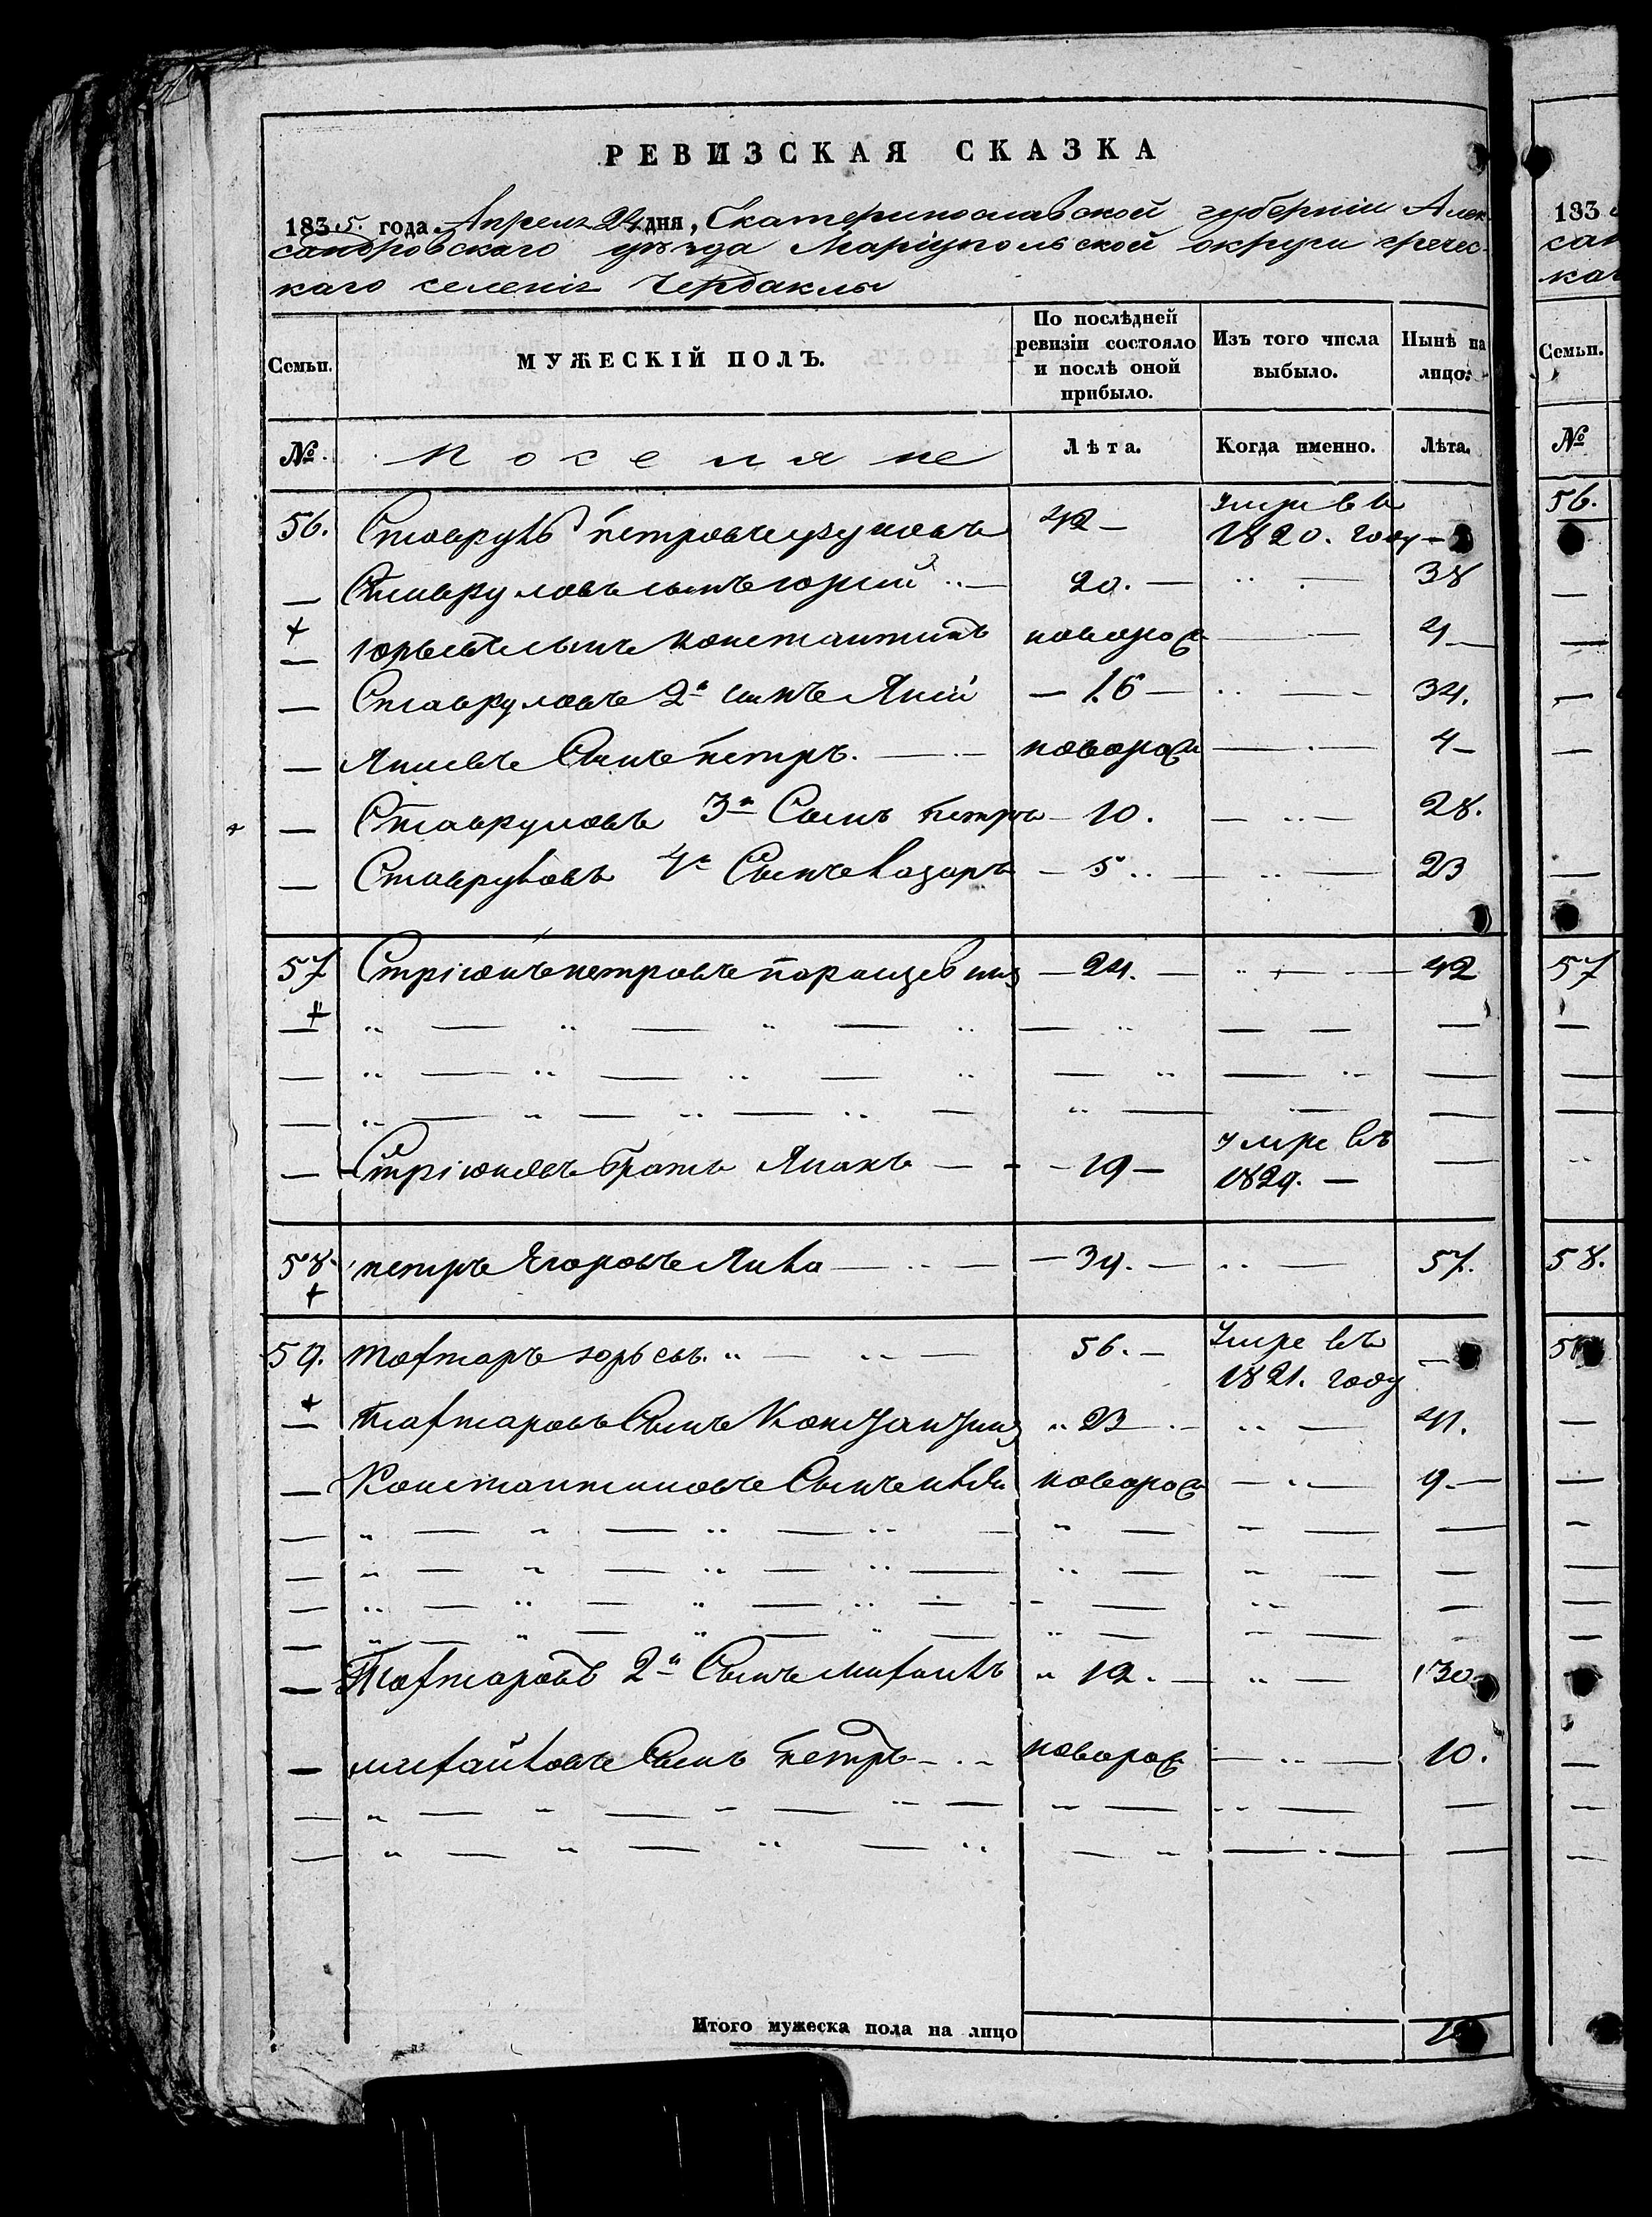 РЕВИЗСКАЯ СКАЗКА
1835. года Апреля 24 дня, Екатеринославской губерніи Алек
сандровскаго уѣзда Маріупольской округи гречес-
каго селенія Чердаклы
Семьи.
МУЖЕСКІЙ ПОЛЪ.
По послѣдней ревизіи состояло и послѣ оной прибыло.
Изъ того числа выбыло.
Нынѣ на лицо.
№.
Поселяне
Лѣта.
Когда именно.
Лѣта.
56. Ставрулъ петровъ 42 - умре въ 1820. году -
— Ставруловъ сынъ юрий 20. — 38
+ — юрьевъ сынъ константинъ новорож 4 —
— Ставруловъ 2й сынъ Яний — 16 — 34.
— Яниевъ Сынъ петръ. — новорож 4 —
— Ставруловъ 3й Сынъ петръ — 10. — 28.
— Ставруловъ 4й Сынъ лазарь — 5 — 23
57 петровъ — 24. — 42
— братъ — 19 — умре въ 1829. —
58. петръ Егоровъ — 34. — 57.
+
59. тохтаръ юрьевъ. 56. — умре въ 1821. году —
+ — тахтаровъ Сынъ Константинъ 23 — 41.
— Константиновъ Сынъ новорож — 9 —
— Тохтаровъ 2й Сынъ михаилъ 12. — 30
— михайловъ Сынъ петръ новорож — 10.
Итого мужеска пола на лицо
183
сан
ка
Семьи.
№
56.
57
58.